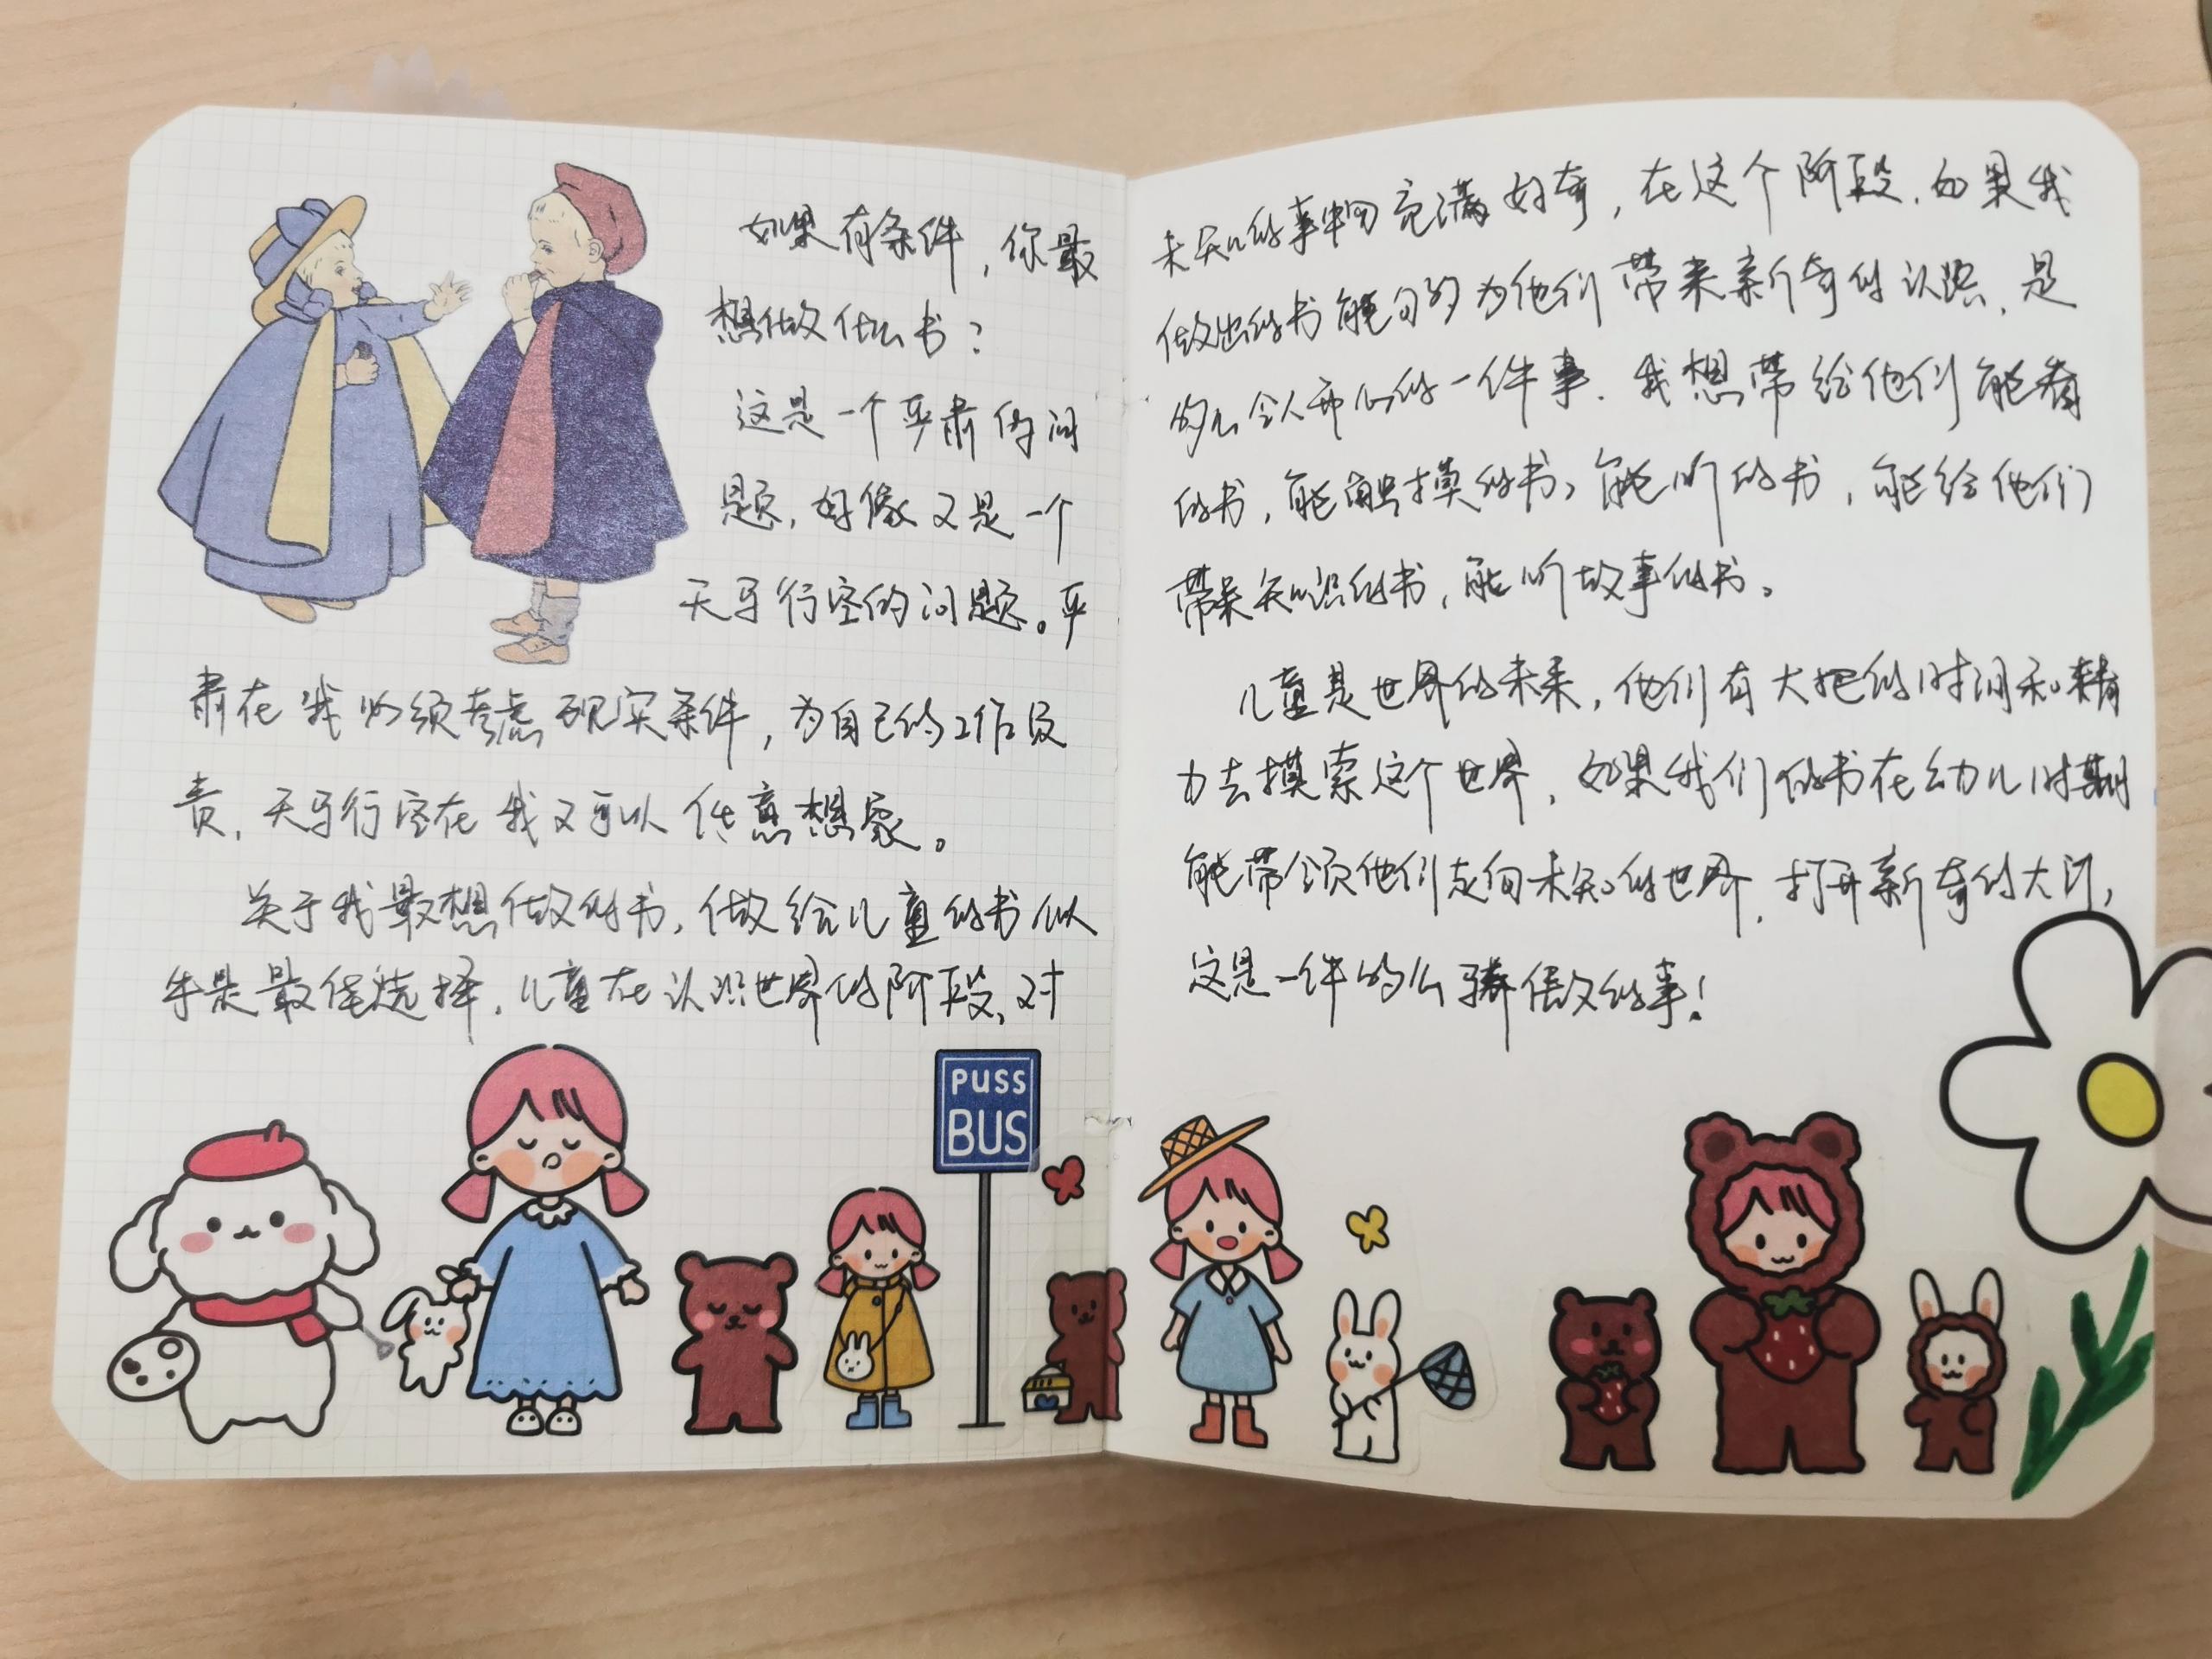 如果有条件，你最
想做什么书？
这是一个严肃的问
题，好像又是一个
天马行空的问题。严
肃在我必须考虑现实条件，为自己的工作负
责，天马行空在我又可以任意想象。
关于我最想做的书，做给儿童的书似
乎是最佳选择，儿童在认识世界的阶段，对
PUSS
BUS
未知的事物充满好奇，在这个阶段，如果我
做出的书能够为他们带来新奇的认识，是
多么令人开心的一件事。我想带给他们能看
的书，能触摸的书，能听的书，能给他们
带来知识的书，能听故事的书。
儿童是世界的未来，他们有大把的时间和精
力去摸索这个世界，如果我们的书在幼儿时期
能带领他们走向未知的世界，打开新奇的大门，
这是一件多么骄傲的事！